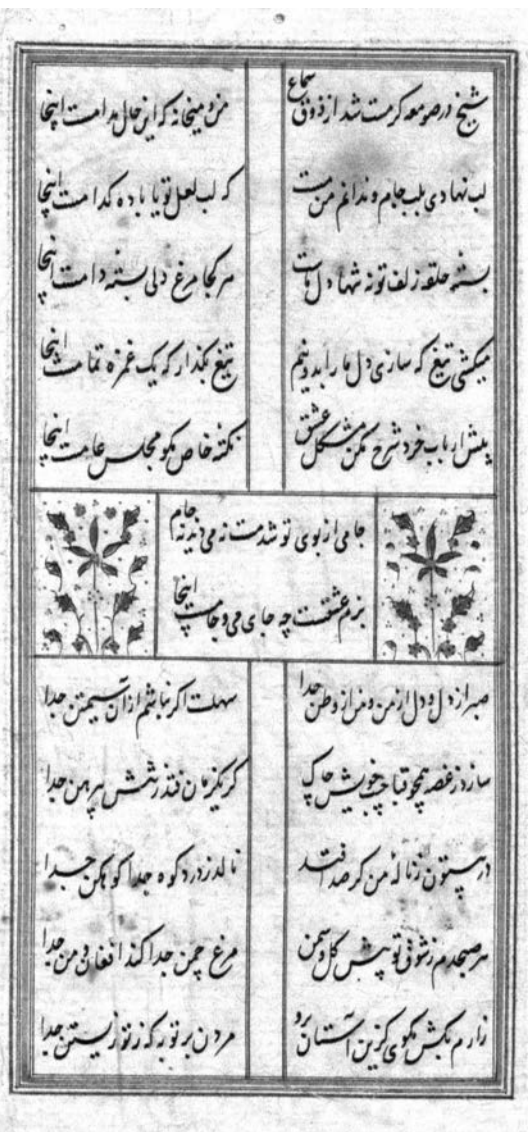 شیخ در صومعه گر مست شد از ذوق سماع من و میخانه که این حال مدامست اینجا
لب نهادی بلب جام و ندانم من مست که لب لعل تو یا باده کدامست اینجا
بسته حلقه زلف تو نه تنها دل ماست هر کجا مرغ دلی بسته دامست اینجا
میکشی تیغ که سازی دل ما را بدو نیم تیغ بگذار که یک غمزه تمامست اینجا
پیش ارباب خرد شرح مکن مشکل عشق نکتهٔ خاص مگو مجلس عامست اینجا
جامی از بوی تو شد مست نه می دیده نه جام
بزم عشقست چه جای می و جامست اینجا
صبر از دل و دل از من و من از وطن جدا سهلست اگر نباشم از آن سیمتن جدا
سازد ز غصه همچو قبا جیب خویش چاک گر یکزمان فتد ز تنش پیرهن جدا
در بیستون ز نالهٔ من گر صدا فتد نالد ز درد کوه جدا کوهکن جدا
هر صبحدم ز شوق تو پیش گل و سمن مرغ چمن جدا کند افغان و من جدا
زارم بکش مگوی کزین آستان برو مردن بر تو به که ز تو زیستن جدا